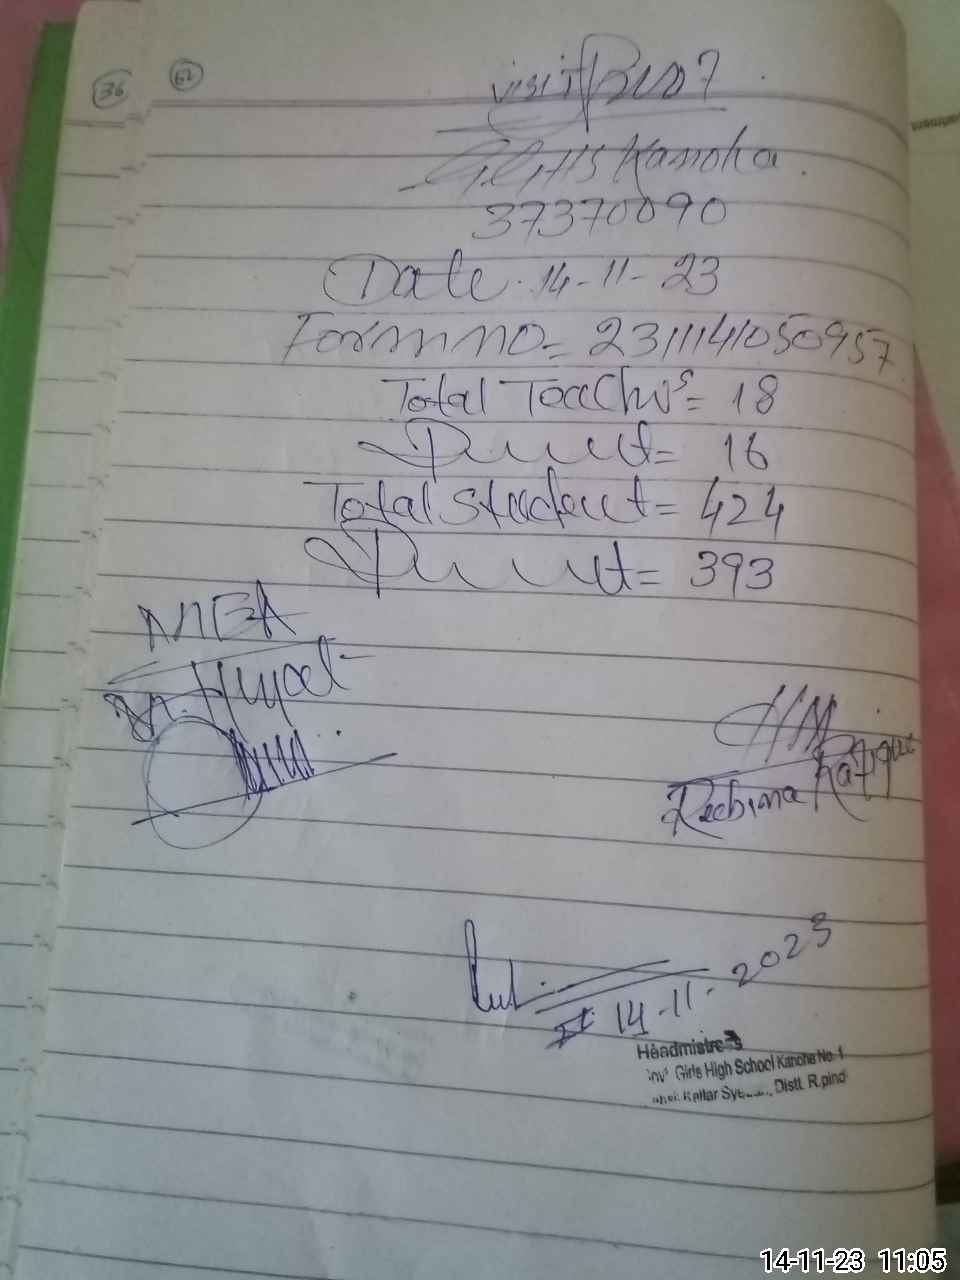 36
62
visit
GGHS Kanoha
37370090
Date 14-11-23
Form no = 2311141050957
Total Teachrs = 18
= 16
Total student = 424
= 393
MEA
HM
Reebina Rafique
14-11-2023
Headmistress
Govt Girls High School Kanoha No. 1
Kallar Distt. R.pindi
14-11-23 11:05